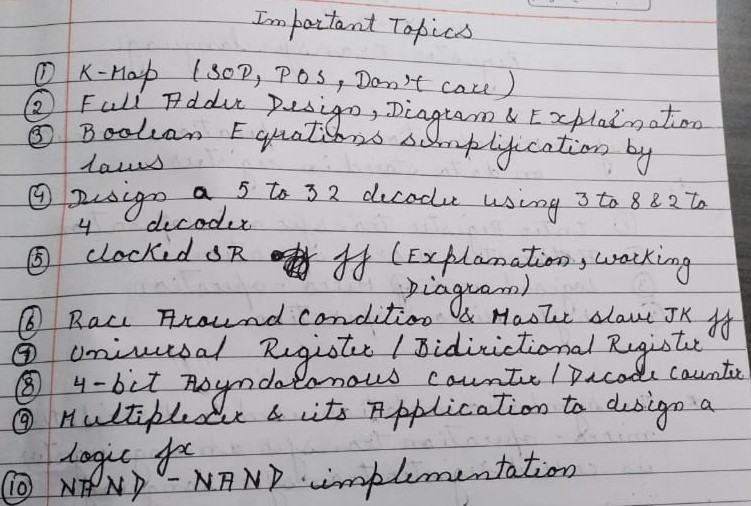 Important Topics
① K-Map (SOP, POS, Don't care)
② Full Adder Design, Diagram & Explaination
③ Boolean Equations simplification by
laws
④ Design a 5 to 32 decoder using 3 to 8 & 2 to
4 decoder
⑤ Clocked SR ff (Explanation, working
Diagram)
⑥ Race Around Condition & Master slave JK ff
⑦ Universal Register / Bidirictional Register
⑧ 4-bit Asyndoronous Counter / Decade Counter
⑨ Multiplexer & its Application to design a
logic fx
⑩ NAND - NAND implementation